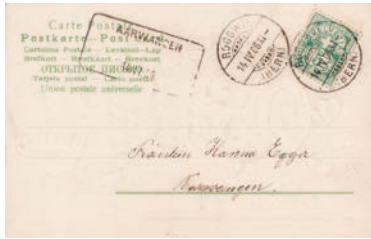 Carte Postale
Postkarte – Post
Cartolina Postale – Levelező-Lap
Brefkort – Brevkort
ОТКРЫТОЕ ПИСЬМО
Tarjeta postal – Carta postal
Union postale universelle
AARWANGEN
ROGGWIL
14.IV.06
(BERN)
14.IV.
BERN)
Fräulein Hanna Egger
Aarwangen.